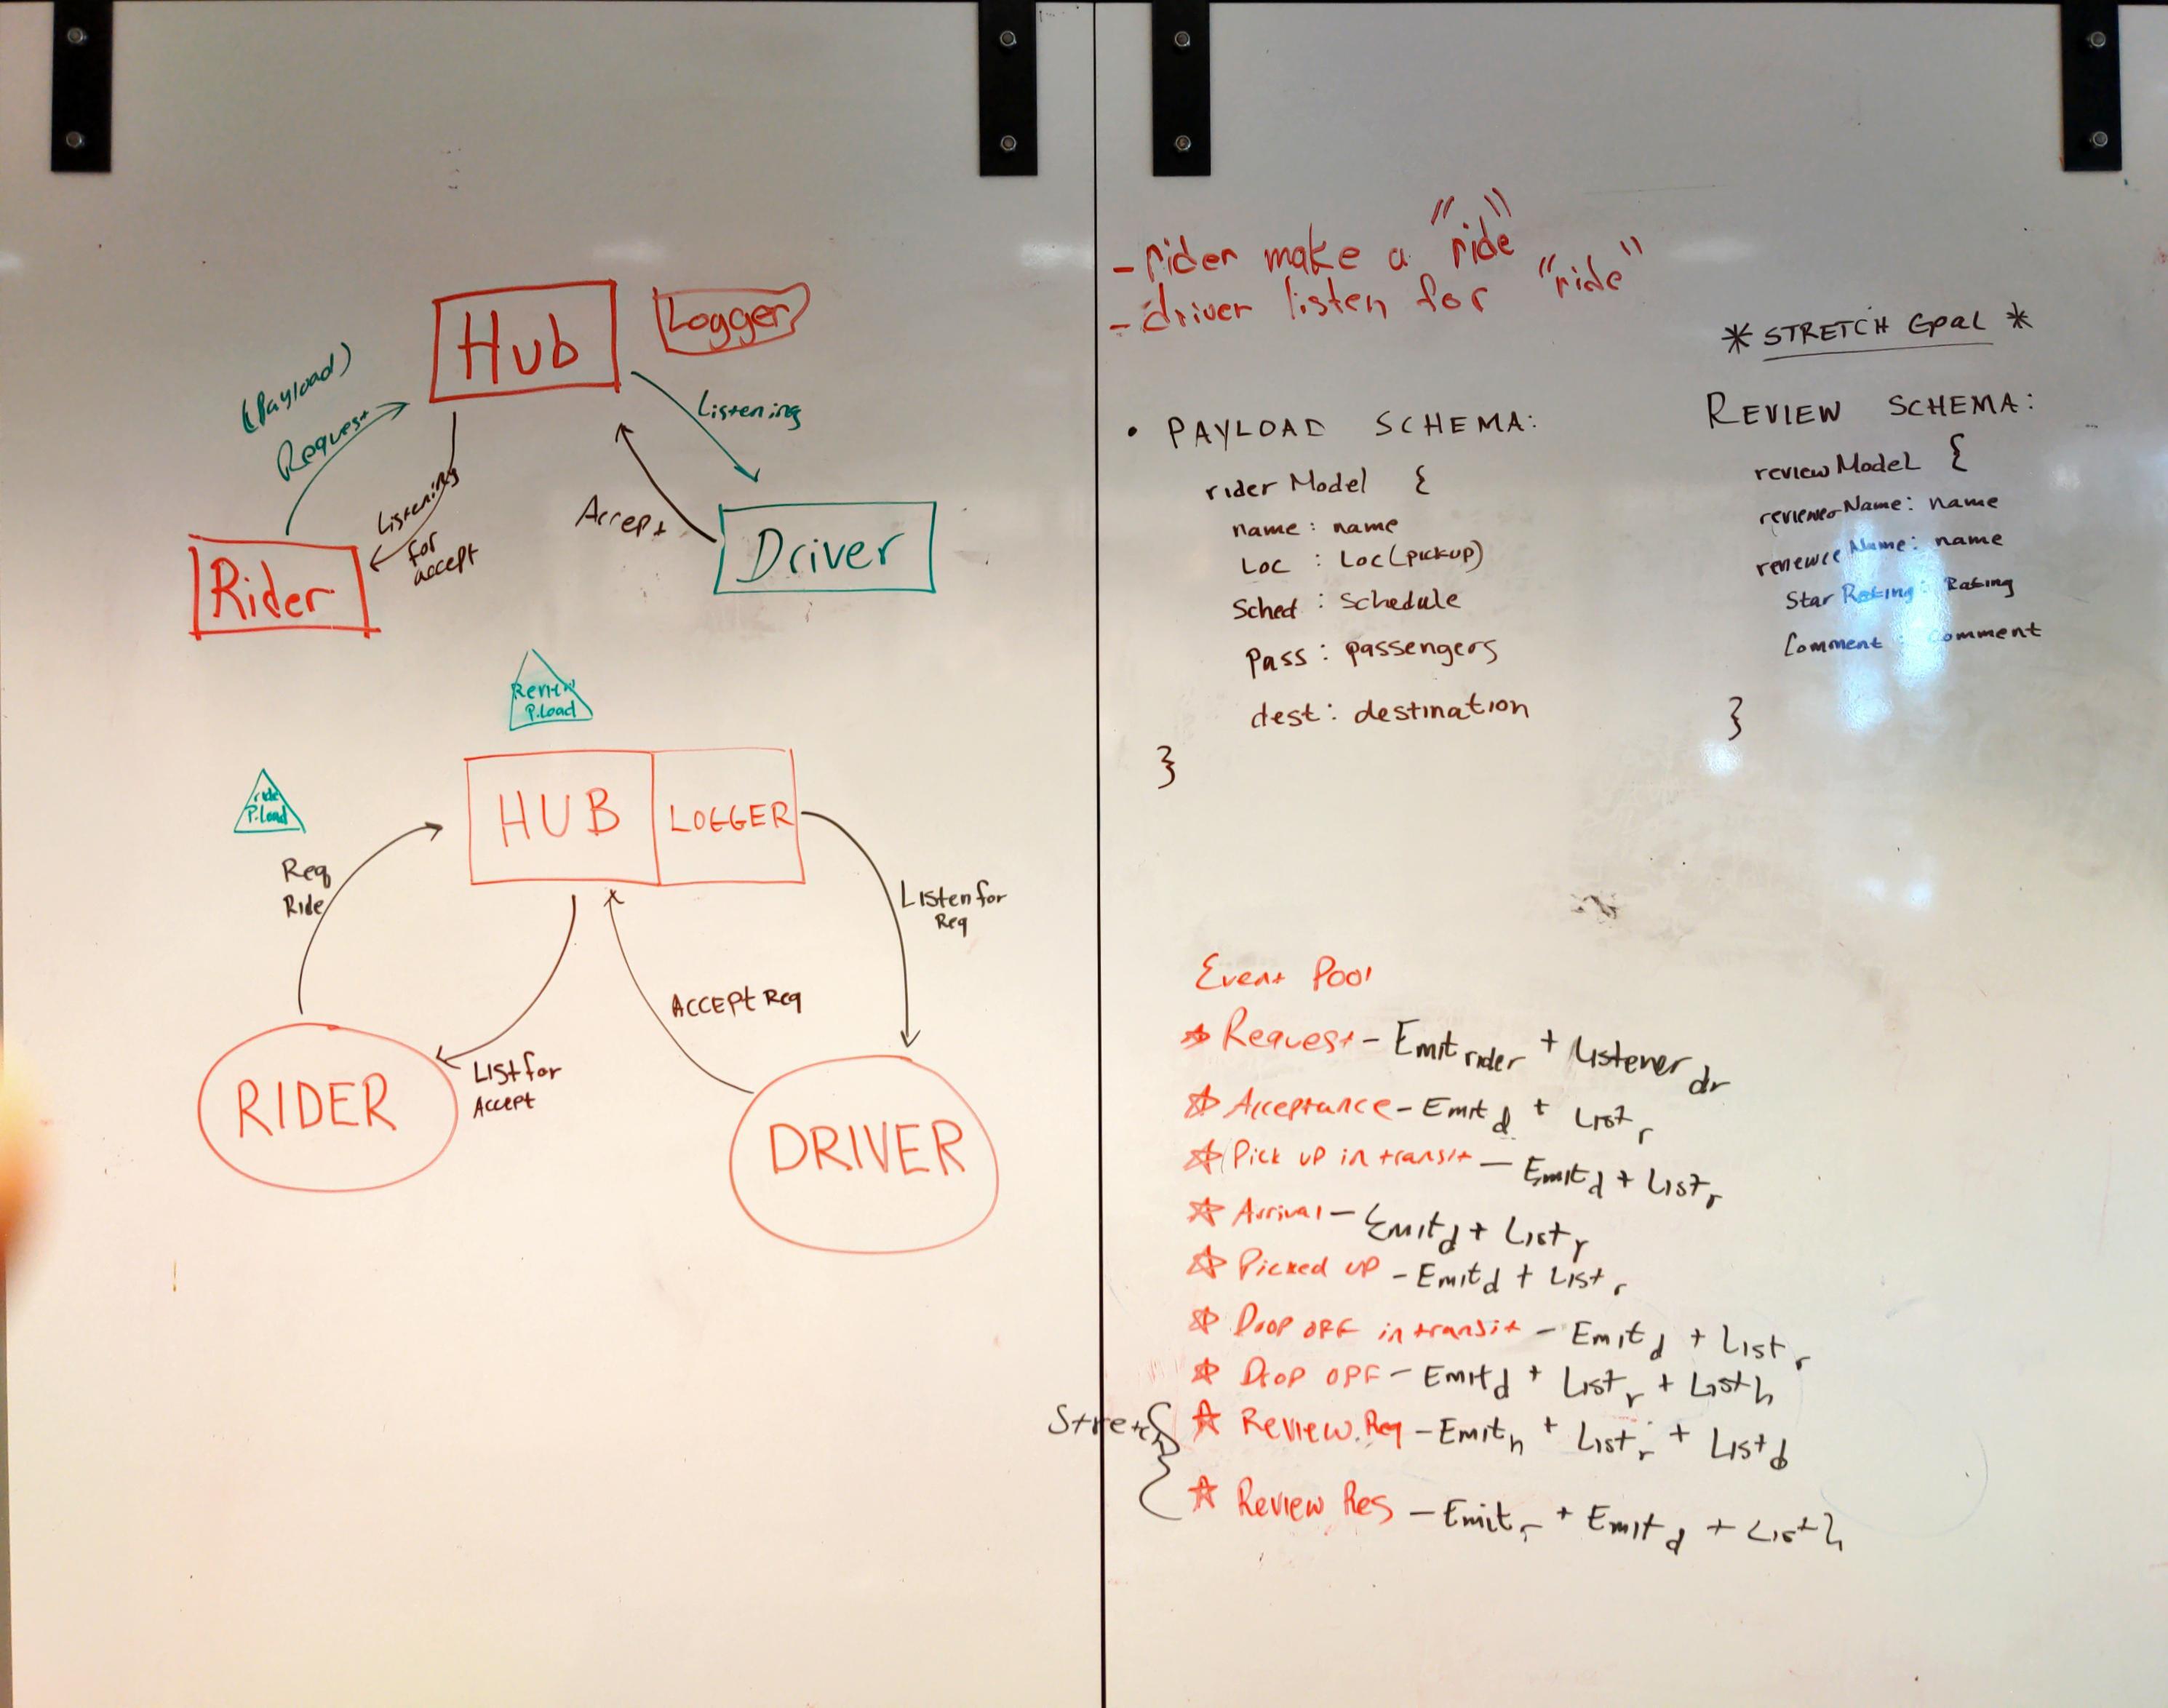 Hub
Logger
(Payload)
Request
Listening
Listening
for
accept
Accept
Rider
Driver
Review
P.Load
ride
P.Load
HUB
LOGGER
Req
Ride
Listen for
Req
Accept Req
List for
Accept
RIDER
DRIVER
- rider make a "ride"
- driver listen for "ride"
* STRETCH GOAL *
• PAYLOAD SCHEMA:
rider Model {
name : name
Loc : Loc (pickup)
Sched : Schedule
Pass : passengers
dest : destination
}
REVIEW SCHEMA:
reviewModel {
reviewerName : name
revieweeName : name
Star Rating : Rating
Comment : Comment
}
Event Pool
☆ Request - Emit rider + Listener dr
☆ Acceptance - Emit d + List r
☆ Pick up in transit - Emit d + List r
☆ Arrival - Emit d + List r
☆ Picked up - Emit d + List r
☆ Drop off in transit - Emit d + List r
☆ Drop off - Emit d + List r + List h
Stretch
☆ Review Req - Emit h + List r + List d
☆ Review Res - Emit r + Emit d + List h